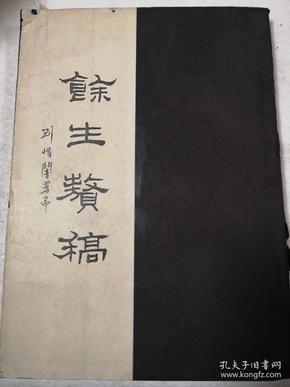 餘生贅稿
刘惜闇署耑
孔夫子旧书网